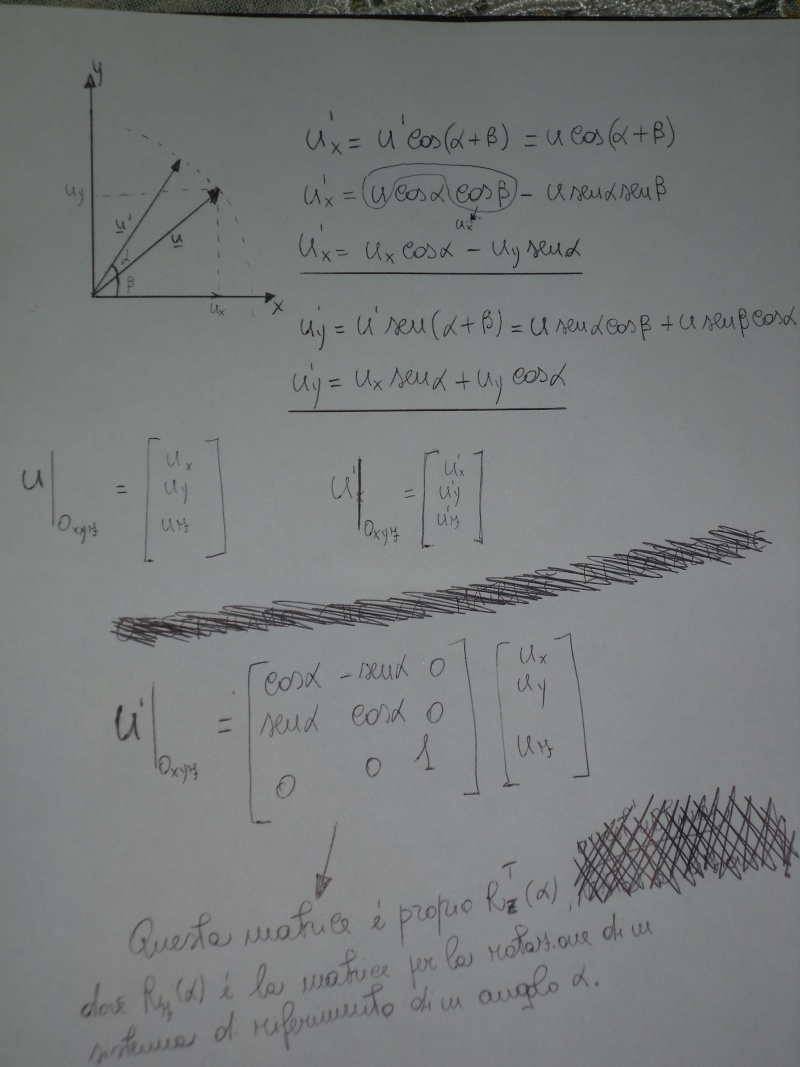 y
u'x = u' cos(α+β) = u cos(α+β)
uy
u'x = u cosα cosβ - u senα senβ
ux
u'
u
u'x = ux cosα - uy senα
α
β
ux
x
u'y = u' sen(α+β) = u senα cosβ + u senβ cosα
u'y = ux senα + uy cosα
u|Oxyz = [ux uy uz]
u'|Oxyz = [u'x u'y u'z]
u'|Oxyz = [cosα -senα 0
senα cosα 0
0 0 1] [ux uy uz]
Questa matrice é proprio Rz^T(α),
dove Rz(α) é la matrice per la rotazione di un
sistema di riferimento di un angolo α.